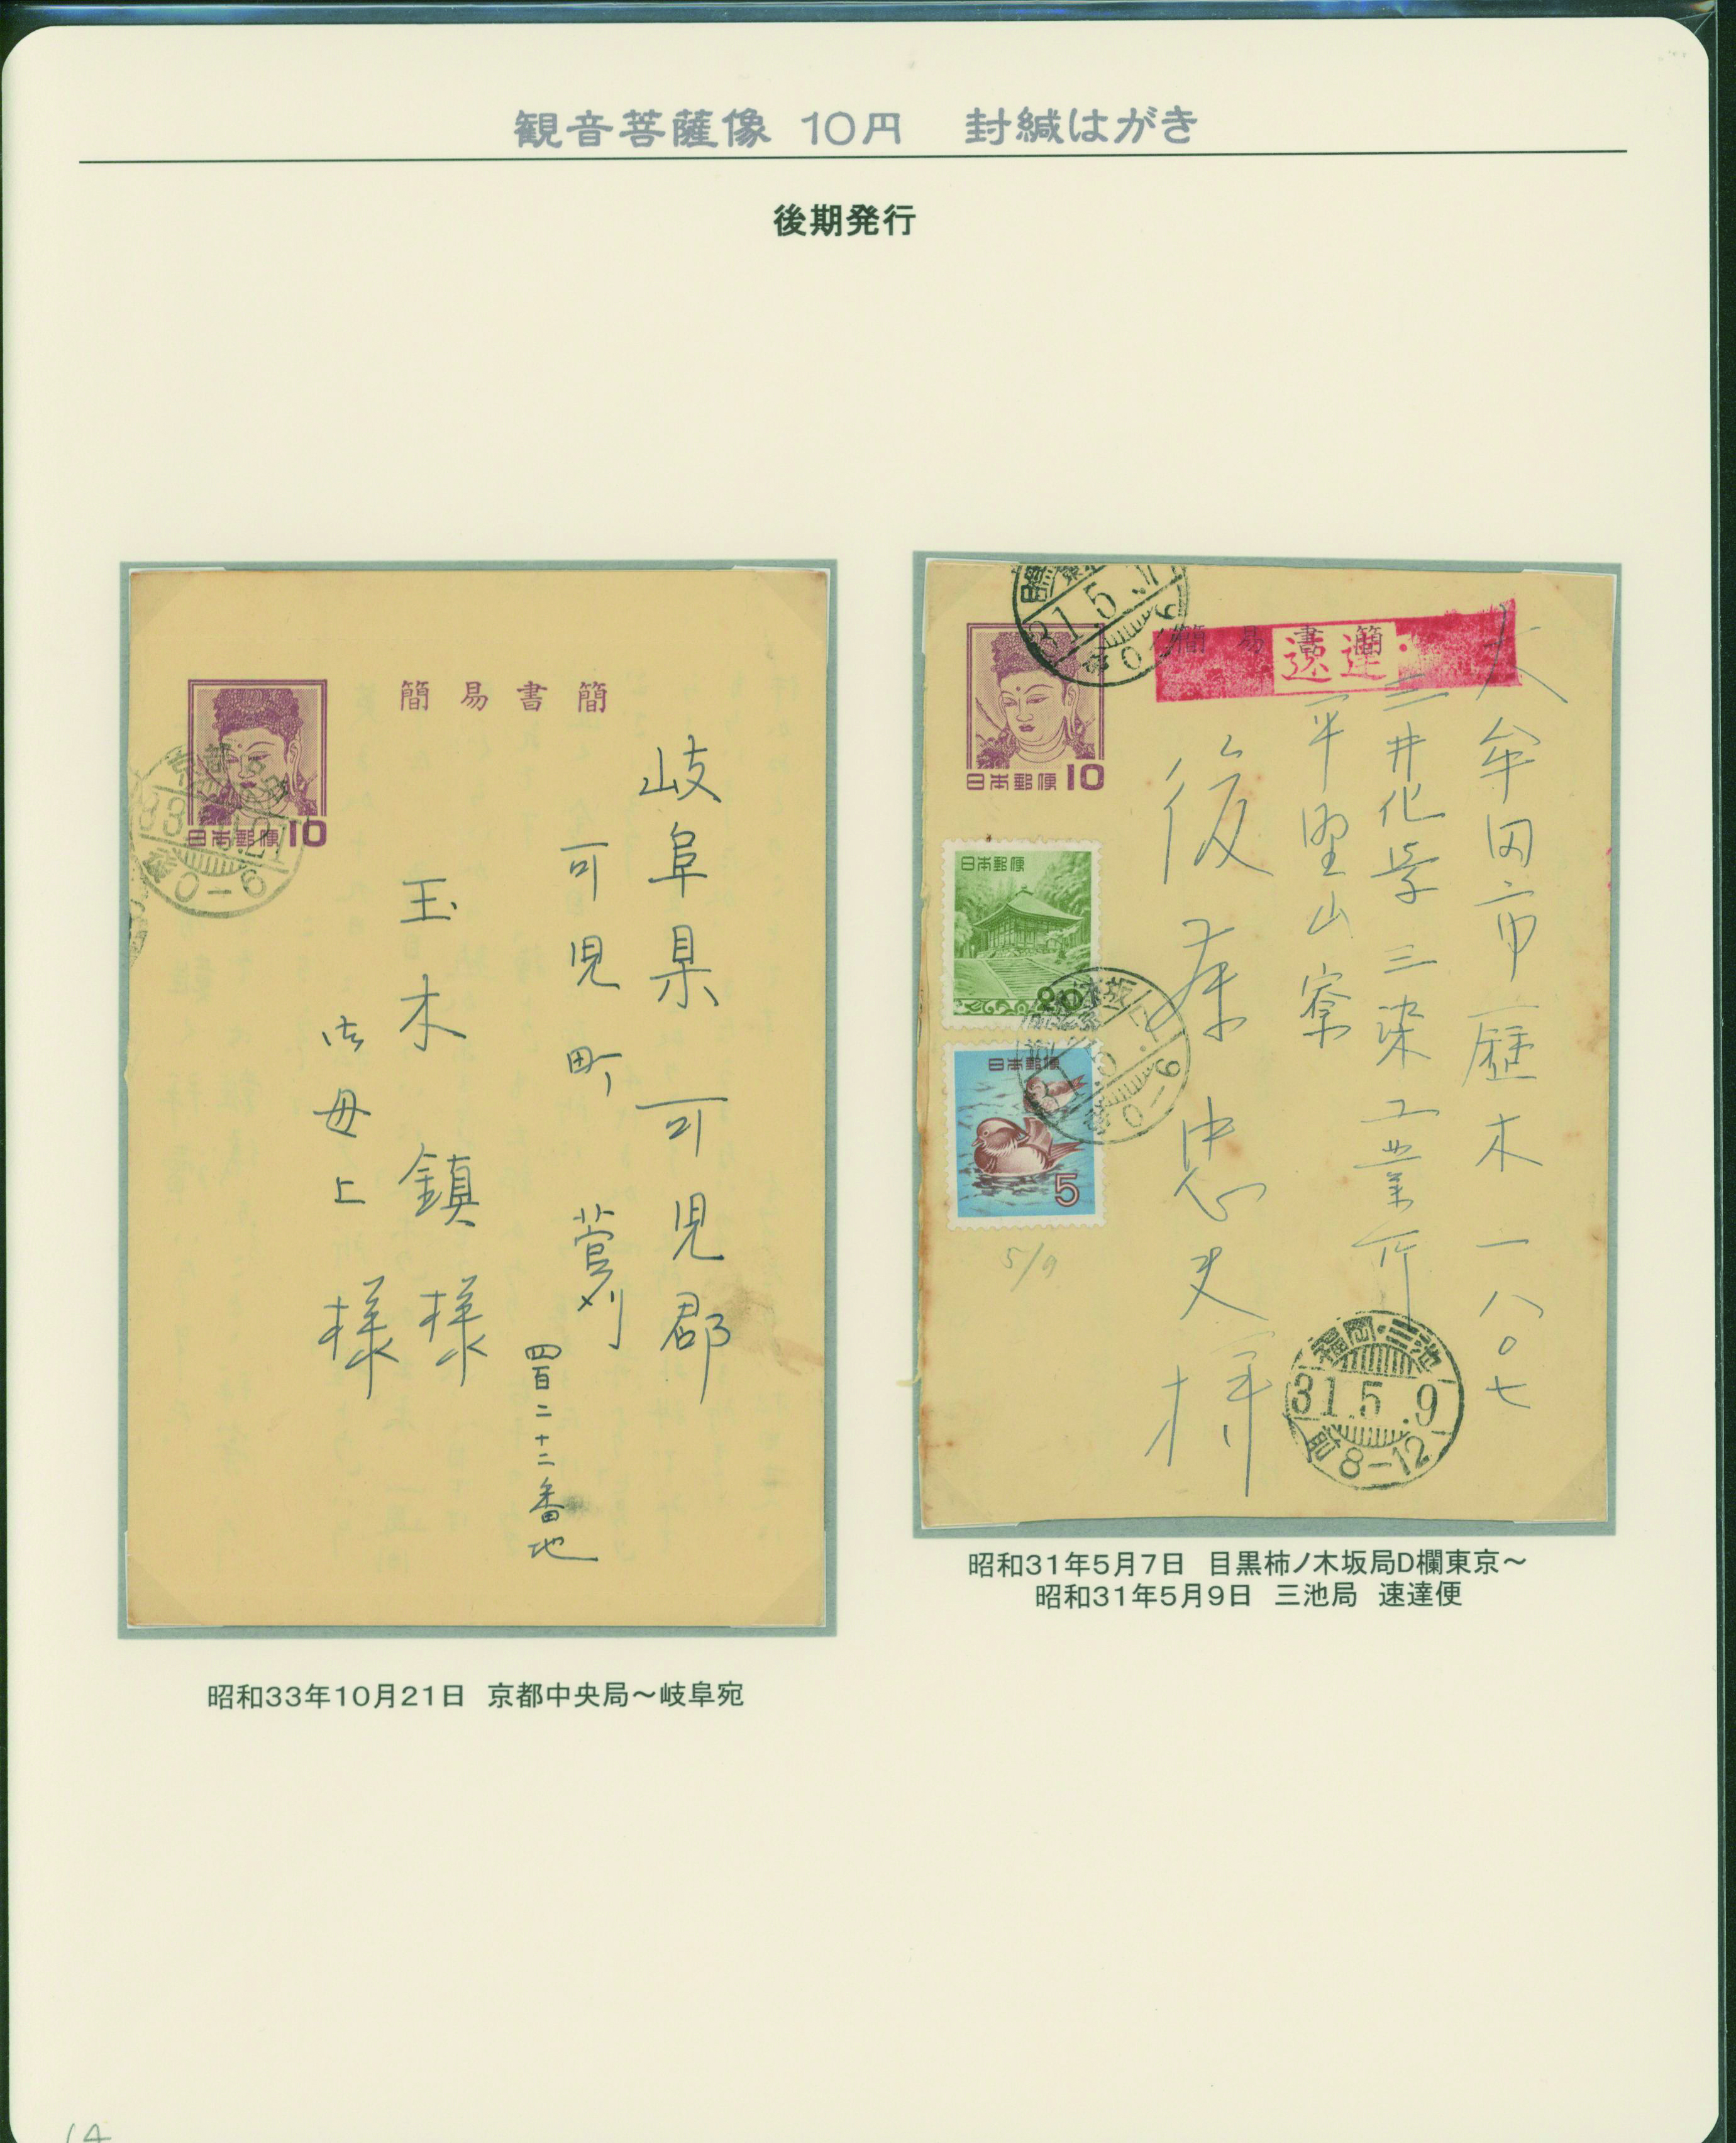 観音菩薩像 10円 封緘はがき
後期発行
簡易書簡
日本郵便10
京都中央
33.10.21
後0-6
岐阜県可児郡
可児町 菅刈
四百二十二番地
玉木 鎮 様
御母上 様
昭和33年10月21日 京都中央局～岐阜宛
簡易書簡
速達
日本郵便10
31.5.7
後0-6
日本郵便
80
日本郵便
5
木坂
後0-6
5/9
大牟田市歴木一八〇七
三井化学三染工業所
平野山寮
後藤忠夫様
福岡・三池
31.5.9
前8-12
昭和31年5月7日 目黒柿ノ木坂局D欄東京～
昭和31年5月9日 三池局 速達便
14